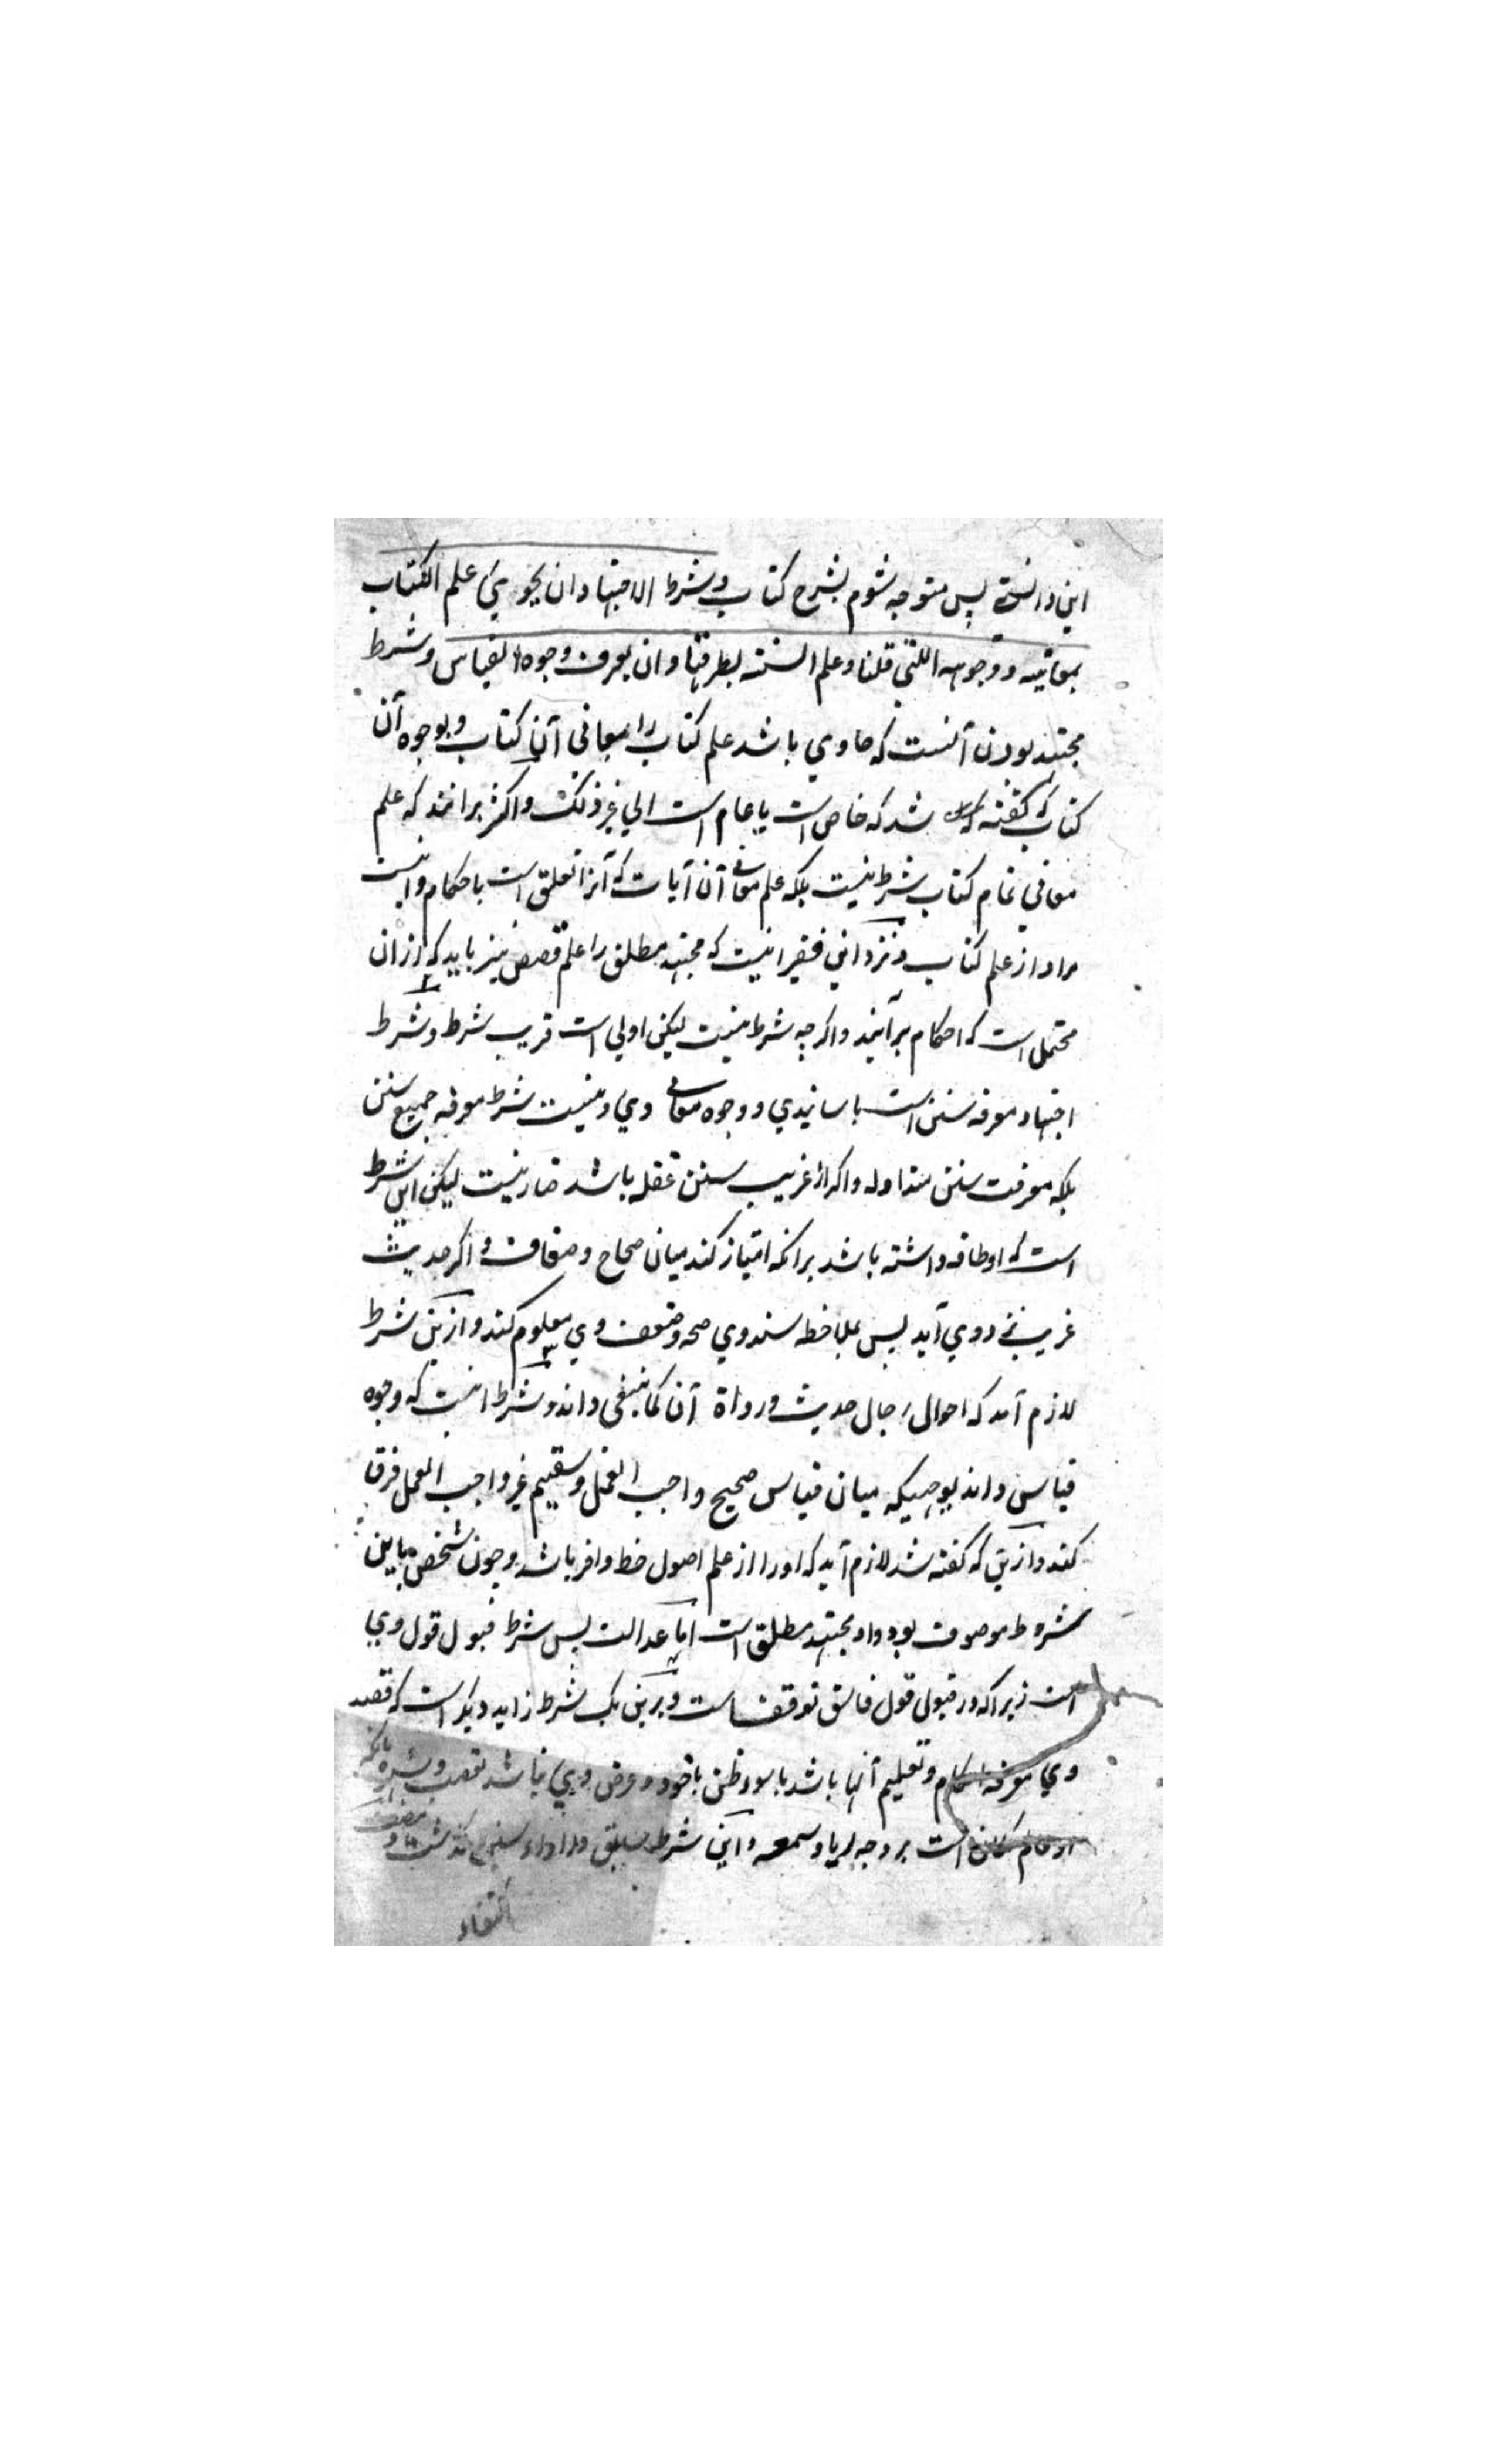 این دانستی پس متوجه شوم بشرح کتاب وشرط الاجتهاد ان یحوی علم الکتاب
بمعانیه ووجوهه اللتی قلنا وعلم السنة بطرقها وان یعرف وجوه القیاس وشرط
مجتهد بودن آنست که حاوی باشد علم کتاب را بمعانی آن کتاب وبوجوه آن
کتاب که گفته شد که خاص است یا عام است الی غیر ذلک واکثر برانند که علم
معانی تمام کتاب شرط نیست بلکه علم معانی آن آیات که آنرا تعلق است باحکام واینست
مراد از علم کتاب ونزد این فقیر اینست که مجتهد مطلق را علم قصص نیز باید که از ان
محتمل است که احکام برآیند واکرچه شرط نیست لیکن اولی است قریب شرط وشرط
اجتهاد معرفه سنن است باسانیدی ووجوه معانی وی ونیست شرط معرفه جمیع سنن
بلکه معرفت سنن متداوله واکر از غریب سنن غفله باشد ضار نیست لیکن این شرط
است که او طاقه داشته باشد برانکه امتیاز کند میان صحاح وضعاف واکر حدیث
غریب نزد وی آید پس بملاحظه سند وی صحه وضعف وی معلوم کند وازین شرط
لازم آمد که احوال رجال حدیث ورواة آن کما ینبغی داند وشرط اینست که وجوه
قیاس داند بوجهیکه میان قیاس صحیح واجب العمل وسقیم غیر واجب العمل فرق
کند وازین که گفته شد لازم آید که اورا از علم اصول حظ وافر باشد وچون شخص باین
شروط موصوف بود واو مجتهد مطلق است اما عدالت پس شرط قبول قول وی
است زیراکه در قبول قول فاسق توقف است وبرین یک شرط زاید دیکر است که قصد
وی معرفه احکام وتعلیم آنها باشد با سوء ظن باخود وغرض وی نباشد تعصب
است بر وجه ریا وسمعه واین شرط سابق
اعتقاد